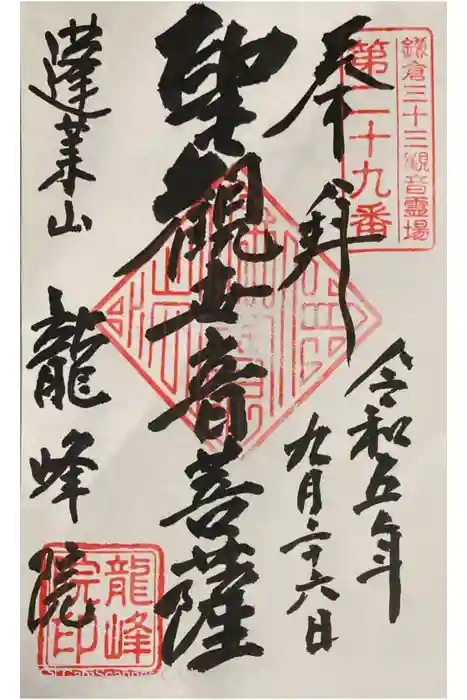 鎌倉三十三観音霊場
第二十九番
奉拝
令和五年
九月二十六日
聖観世音菩薩
蓬莱山
龍峰院
龍峰
院印